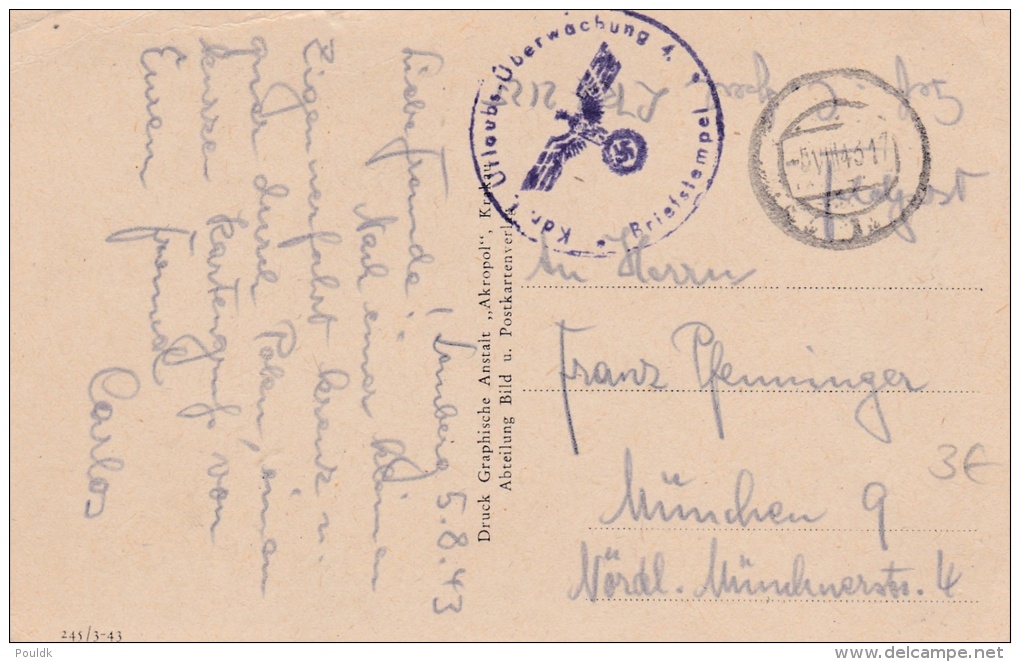 Lemberg 5.8.43
Liebe Freunde!
Nach einer kleinen
Zigeunerfahrt kreuz u.
quer durch Polen, einen
kurzen Kartengruß von
Eurem Freunde
Carlos
245/3-43
Druck Graphische Anstalt „Akropol“, Krakau
Abteilung Bild u. Postkartenverlag
Kdr. Urlaubs-Überwachung 4.
Briefstempel
-5.VIII43.17
Feldpost
An Herrn
Franz Pfenninger
München 9
Nördl. Münchnerstr. 4
3€
Pouldk
delcampe.net